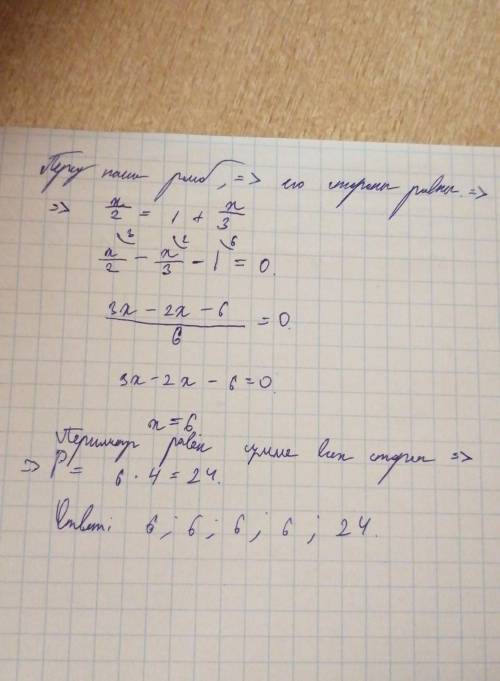 Перед нами ромб, => его стороны равны. =>
=> x/2 = 1 + x/3
x/2 ⁽³ - x/3 ⁽² - 1 ⁽⁶ = 0.
(3x - 2x - 6)/6 = 0.
3x - 2x - 6 = 0.
x = 6
Периметр равен сумме всех сторон =>
=> P = 6 · 4 = 24.
Ответ: 6 ; 6 ; 6 ; 6 ; 24.